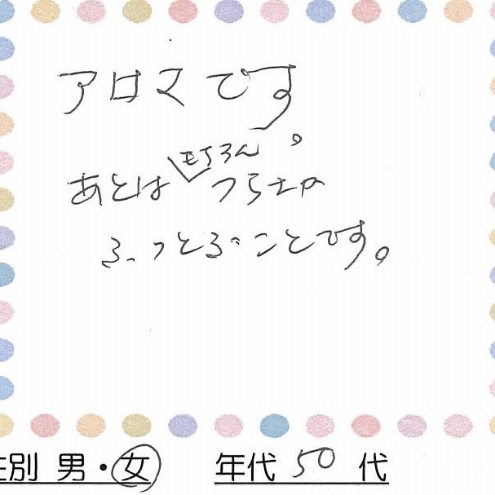 アロマです
。
もちろん
あとは つらさや
ふっとぶことです。
性別 男・女 年代 50 代